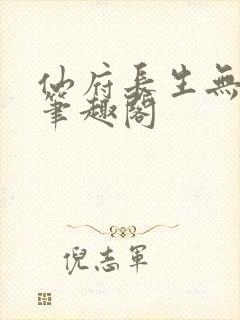 仙府長生無
筆趣閣
倪志軍